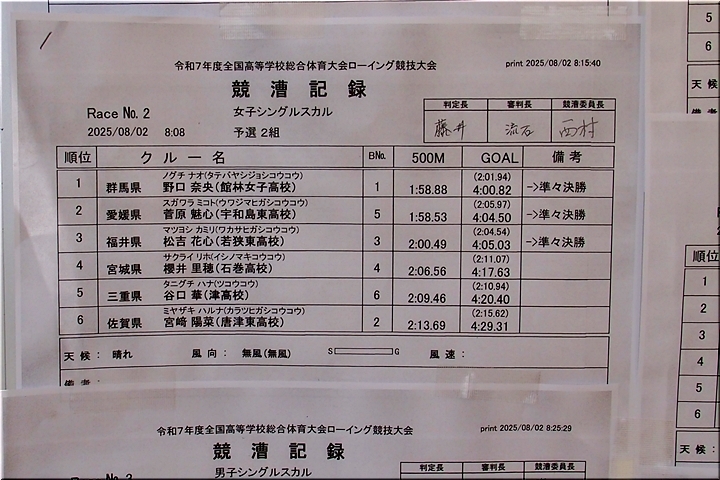 令和7年度全国高等学校総合体育大会ローイング競技大会 print 2025/08/02 8:15:40
競漕記録
Race No. 2 女子シングルスカル
2025/08/02 8:08 予選 2組
判定長 審判長 競漕委員長
藤井 流石 西村
順位 クルー名 BNo. 500M GOAL 備考
ノグチ ナオ(タテバヤシジョシコウコウ) (2:01.94)
1 群馬県 野口 奈央(館林女子高校) 1 1:58.88 4:00.82 ->準々決勝
スガワラ ミコト(ウワジマヒガシコウコウ) (2:05.97)
2 愛媛県 菅原 魅心(宇和島東高校) 5 1:58.53 4:04.50 ->準々決勝
マツヨシ カミリ(ワカサヒガシコウコウ) (2:04.54)
3 福井県 松吉 花心(若狭東高校) 3 2:00.49 4:05.03 ->準々決勝
サクライ リホ(イシノマキコウコウ) (2:11.07)
4 宮城県 櫻井 里穂(石巻高校) 4 2:06.56 4:17.63
タニグチ ハナ(ツコウコウ) (2:10.94)
5 三重県 谷口 華(津高校) 6 2:09.46 4:20.40
ミヤザキ ハルナ(カラツヒガシコウコウ) (2:15.62)
6 佐賀県 宮﨑 陽菜(唐津東高校) 2 2:13.69 4:29.31
天候: 晴れ 風向: 無風(無風) S G 風速:
備考:
令和7年度全国高等学校総合体育大会ローイング競技大会 print 2025/08/02 8:25:29
競漕記録
男子シングルスカル
判定長 審判長 競漕委員長
5
6
天候
順位
1
2
3
4
5
6
天候: